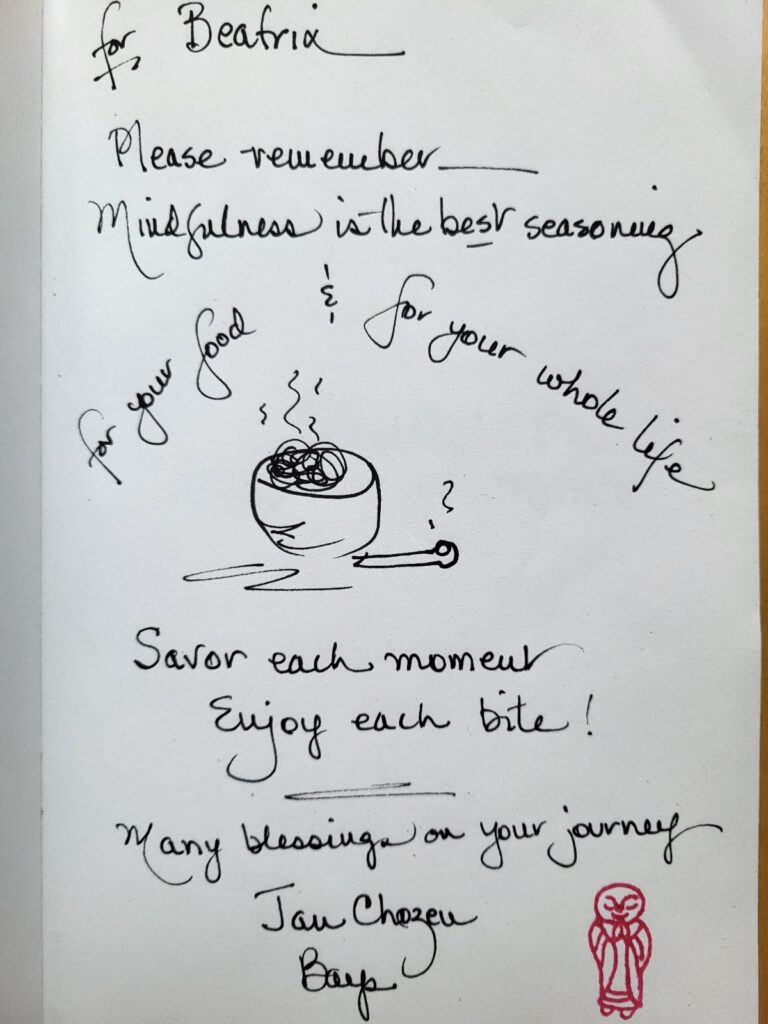 for Beatrix
Please remember
Mindfulness is the best seasoning
&
for your food
for your whole life
Savor each moment
Enjoy each bite!
Many blessings on your journey
Jan Chozen
Bays